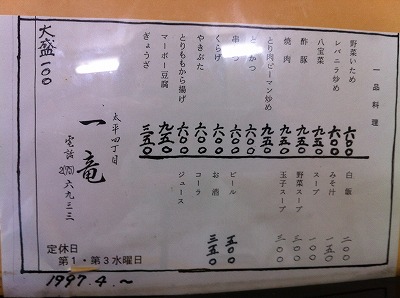 一品料理
野菜いため 六〇〇
レバニラ炒め 六〇〇
八宝菜 九五〇
酢豚 九五〇
焼肉 九五〇
とり肉ピーマン炒め 九五〇
とんかつ 六〇〇
串かつ 六〇〇
くらげ 六〇〇
やきぶた 六〇〇
とりももから揚げ 六〇〇
マーボー豆腐 九五〇
ぎょうざ 三五〇
白飯 二〇〇
みそ汁 一五〇
スープ 一〇〇
野菜スープ 三〇〇
玉子スープ 三〇〇
ビール 五〇〇
お酒 三五〇
コーラ
ジュース
太平四丁目
一竜
電話 六九三三
大盛一〇〇
定休日
第1・第3水曜日
1997.4.～